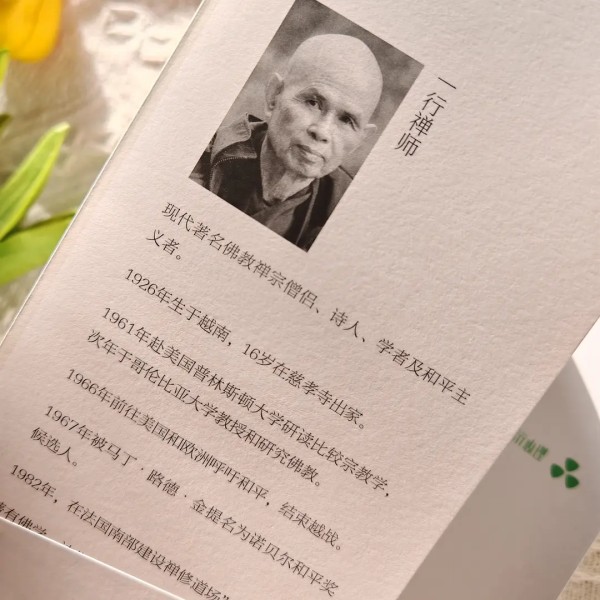 一行禅师
现代著名佛教禅宗僧侣、诗人、学者及和平主
义者。
1926年生于越南，16岁在慈孝寺出家。
1961年赴美国普林斯顿大学研读比较宗教学，
次年于哥伦比亚大学教授和研究佛教。
1966年前往美国和欧洲呼吁和平，结束越战。
1967年被马丁·路德·金提名为诺贝尔和平奖
候选人。
1982年，在法国南部建设禅修道场“
有佛学